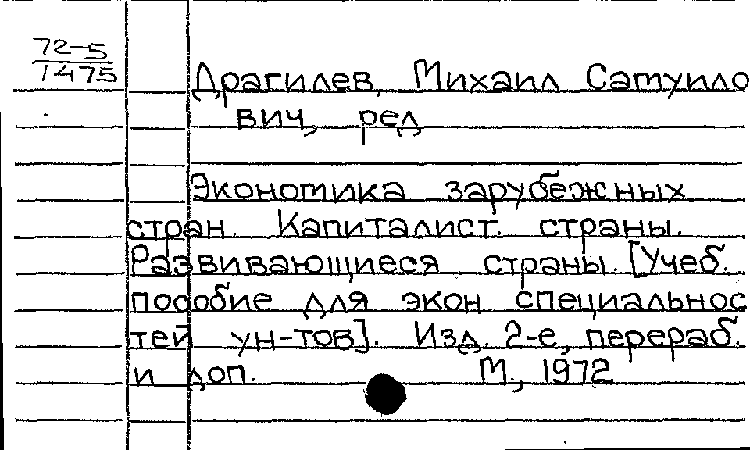 72-5
1475
Драгилев, Михаил Самуило
вич, ред
Экономика зарубежных
стран. Капиталист. страны.
Развивающиеся страны. [Учеб.
пособие для экон специальнос
тей ун-тов]. Изд. 2-е, перераб.
и доп. М., 1972